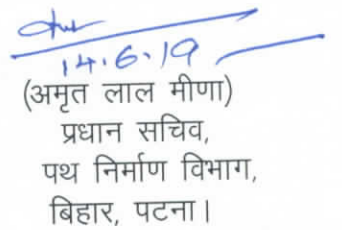 14.6.19
(अमृत लाल मीणा)
प्रधान सचिव,
पथ निर्माण विभाग,
बिहार, पटना।